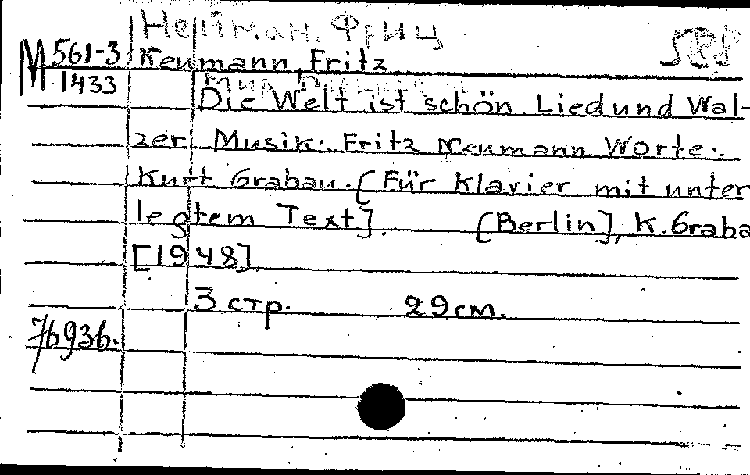 Нейман, Фриц
M 561-3 Neumann, Fritz
1433
Die Welt ist schön Lied und Wal-
zer Musik: Fritz Neumann Worte:
Kurt Grabau. [Für Klavier mit unter
legtem Text]. [Berlin], K. Graba
[1948]
3 стр. 29 см.
76936.